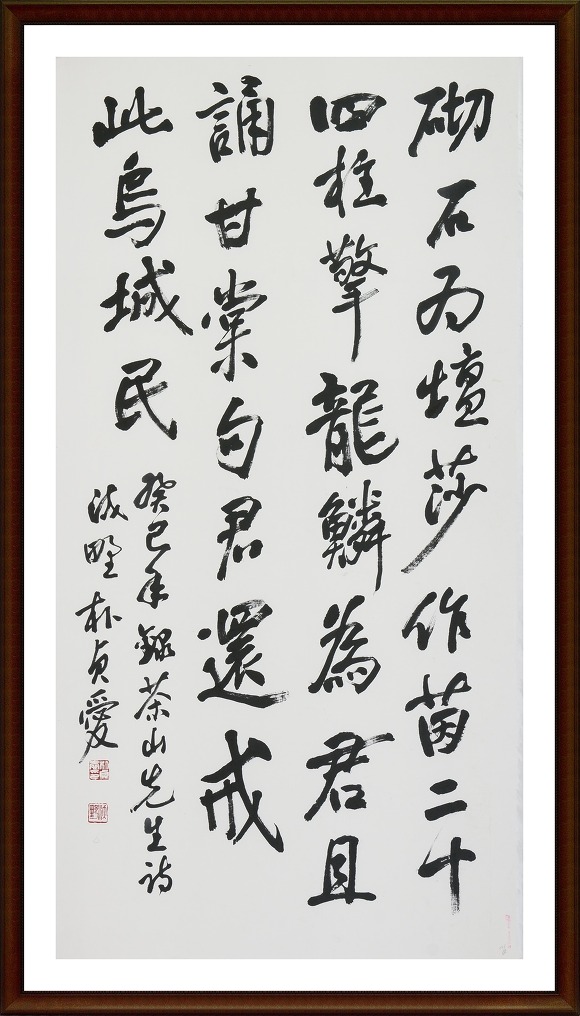 砌石为壇莎作茵二十
四柱擎龍鱗為君且
誦甘棠句君還戒
此烏城民
癸巳年錄茶山先生詩
朴貞愛